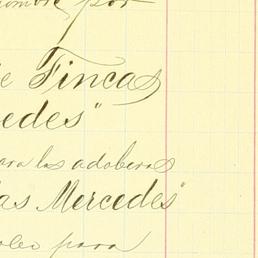 por
e Fincas
edes"
ara las adoberas
as Mercedes"
oleo para